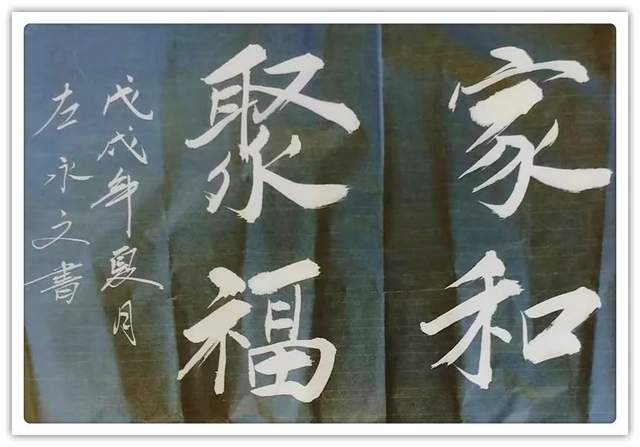 家和
聚福
戊戌年夏月
左永文書